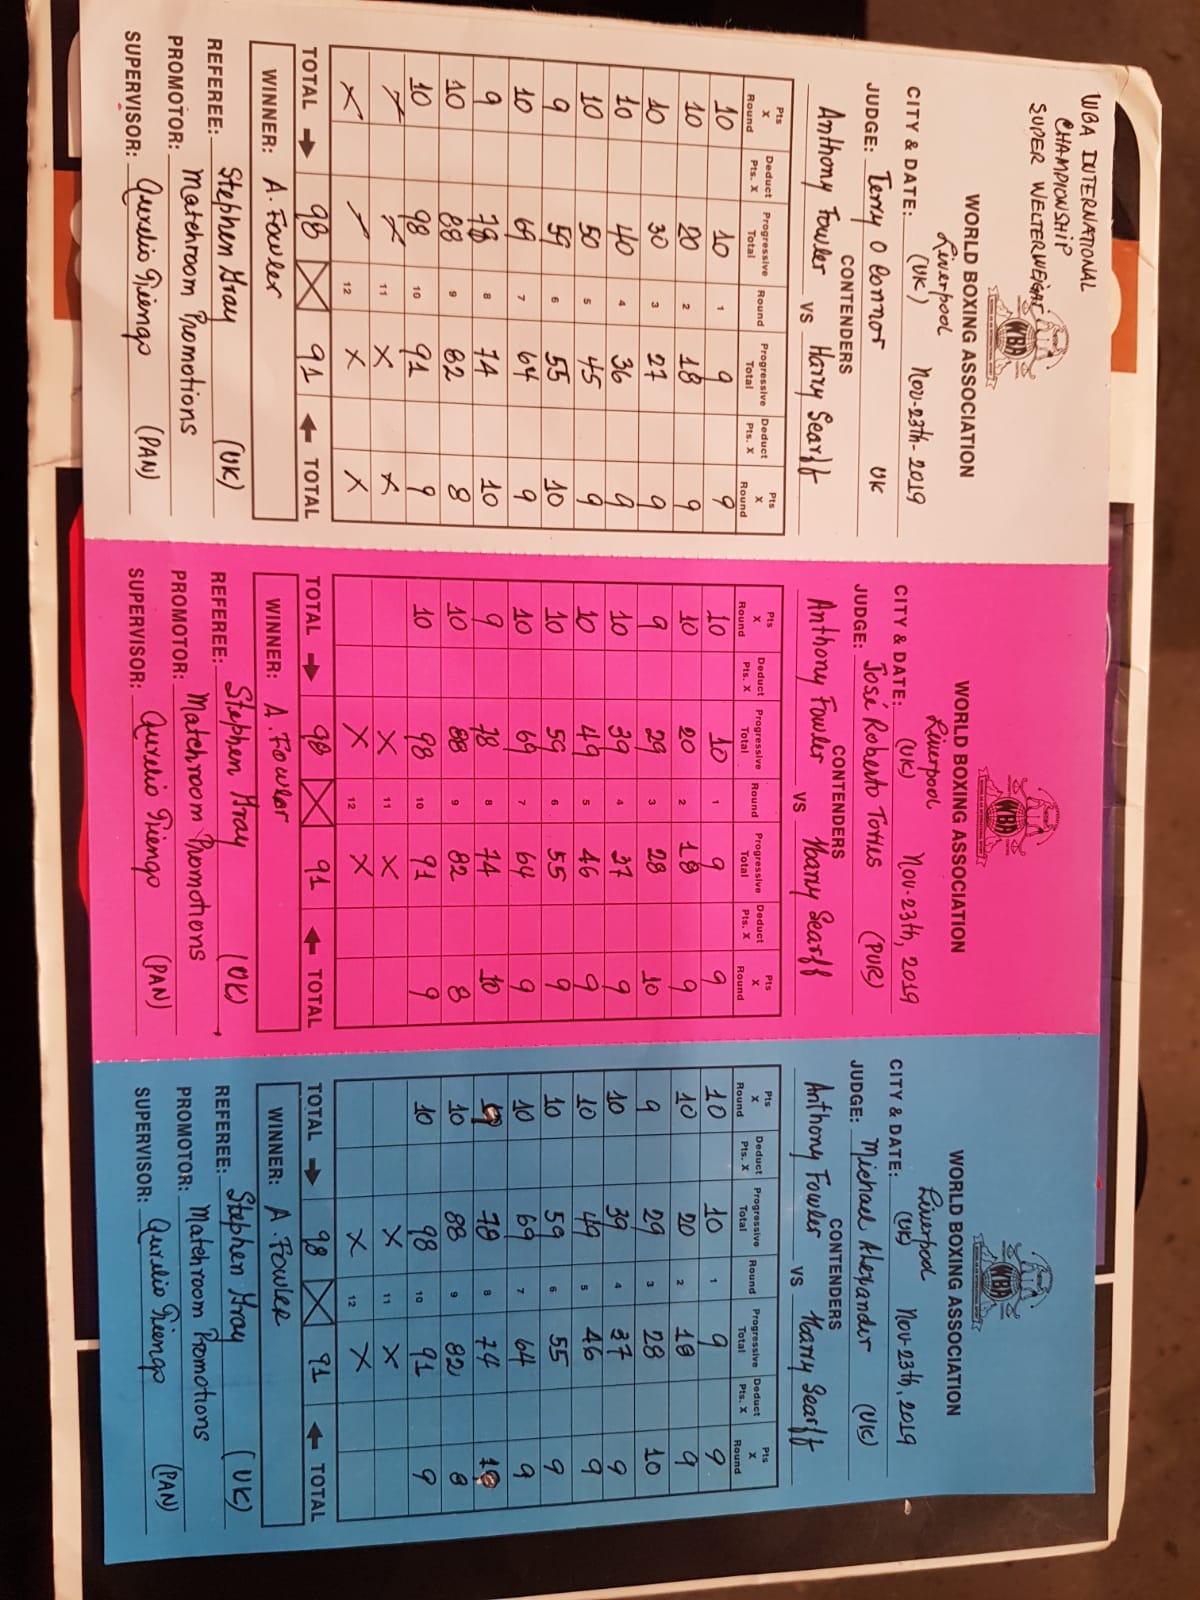 WBA INTERNATIONAL
CHAMPIONSHIP
SUPER WELTERWEIGHT
WBA
WORLD BOXING ASSOCIATION
Liverpool
CITY & DATE: (UK) Nov-23th-2019
JUDGE: Terry O Connor UK
CONTENDERS
Anthony Fowler VS Harry Scarff
Pts X Round Deduct Pts. X Progressive Total Round Progressive Total Deduct Pts. X Pts X Round
10 10 1 9 9
10 20 2 18 9
10 30 3 27 9
10 40 4 36 9
10 50 5 45 9
9 59 6 55 10
10 69 7 64 9
9 78 8 74 10
10 88 9 82 8
10 98 10 91 9
X X 11 X X
X 12 X X
TOTAL → 98 91 ← TOTAL
WINNER: A. Fowler
REFEREE: Stephen Gray (UK)
PROMOTOR: Matchroom Promotions
SUPERVISOR: Aurelio Fiengo (PAN)
WBA
WORLD BOXING ASSOCIATION
Liverpool
CITY & DATE: (UK) Nov-23th, 2019
JUDGE: José Roberto Torres (PUR)
CONTENDERS
Anthony Fowler VS Harry Scarff
Pts X Round Deduct Pts. X Progressive Total Round Progressive Total Deduct Pts. X Pts X Round
10 10 1 9 9
10 20 2 18 9
9 29 3 28 10
10 39 4 37 9
10 49 5 46 9
10 59 6 55 9
10 69 7 64 9
9 78 8 74 10
10 88 9 82 8
10 98 10 91 9
X 11 X
X 12 X
TOTAL → 98 91 ← TOTAL
WINNER: A. Fowler
REFEREE: Stephen Gray (UK)
PROMOTOR: Matchroom Promotions
SUPERVISOR: Aurelio Fiengo (PAN)
WBA
WORLD BOXING ASSOCIATION
Liverpool
CITY & DATE: (UK) Nov-23th, 2019
JUDGE: Michael Alexander (UK)
CONTENDERS
Anthony Fowler VS Harry Scarff
Pts X Round Deduct Pts. X Progressive Total Round Progressive Total Deduct Pts. X Pts X Round
10 10 1 9 9
10 20 2 18 9
9 29 3 28 10
10 39 4 37 9
10 49 5 46 9
10 59 6 55 9
10 69 7 64 9
9 78 8 74 10
10 88 9 82 8
10 98 10 91 9
X 11 X
X 12 X
TOTAL → 98 91 ← TOTAL
WINNER: A. Fowler
REFEREE: Stephen Gray (UK)
PROMOTOR: Matchroom Promotions
SUPERVISOR: Aurelio Fiengo (PAN)